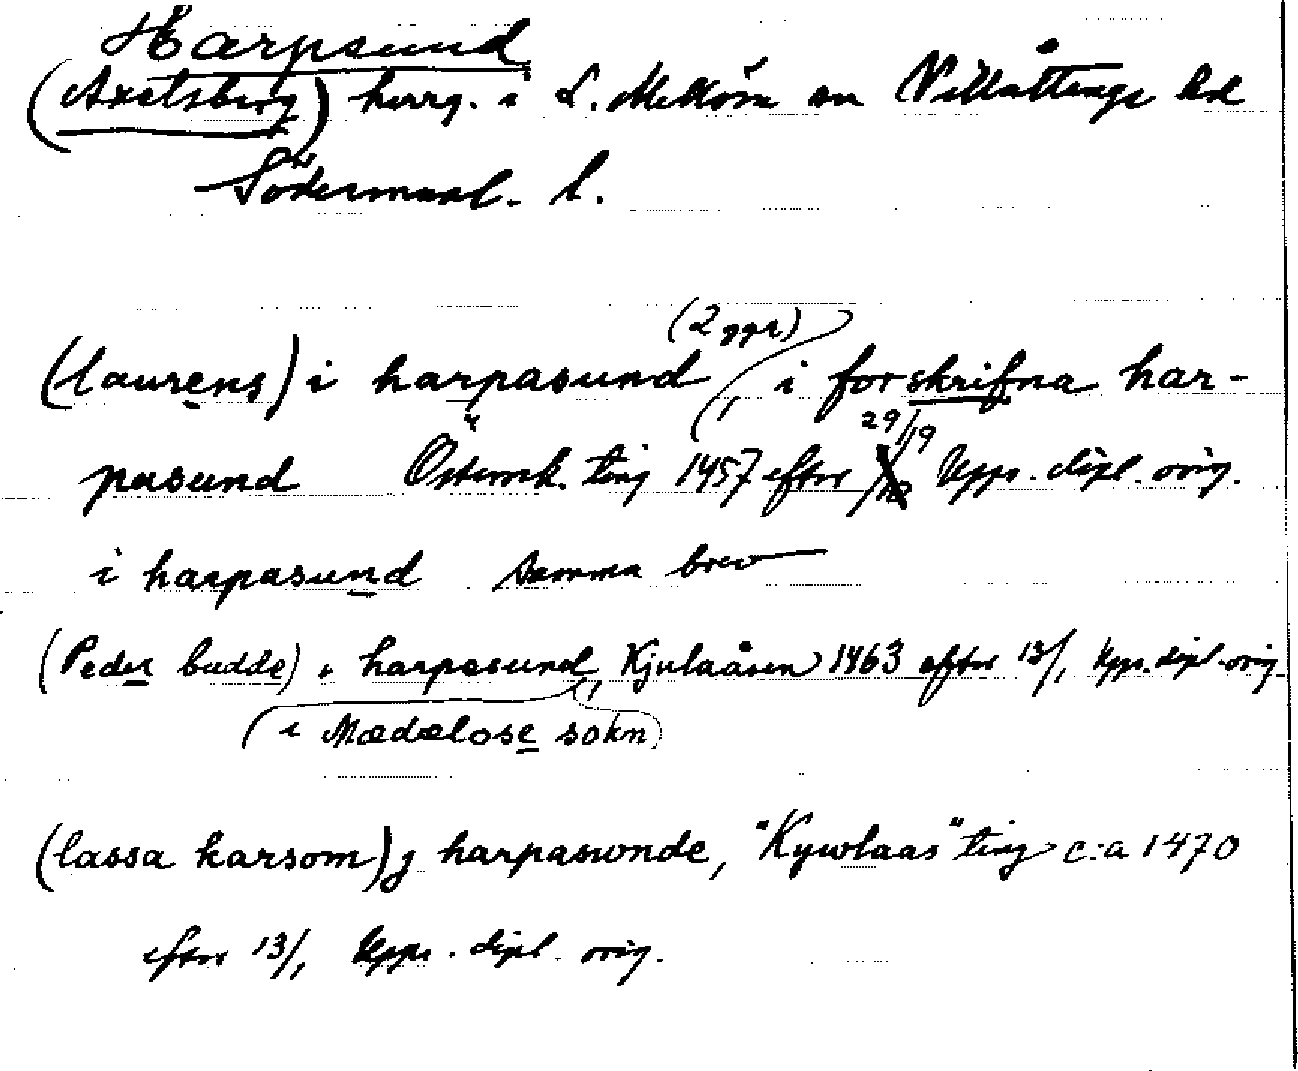 Harpsund
(Axelsberg) herrg. i L. Mellösa sn Villåttinge hd
Södermanl. l.
(2 ggr)
(laurens) i harpasund, i forskrifna har-
29/19
pasund Österrek. ting 1457 efter Upps. dipl. orig.
i harpasund samma brev
(Peder budde) i harpasund, Kjulaåsen 1463 efter 13/1 Upps. dipl. orig.
(i Mædælose sokn)
(lassa karsom) j harpaswnde, "Kywlaas" ting c:a 1470
efter 13/1 Upps. dipl. orig.